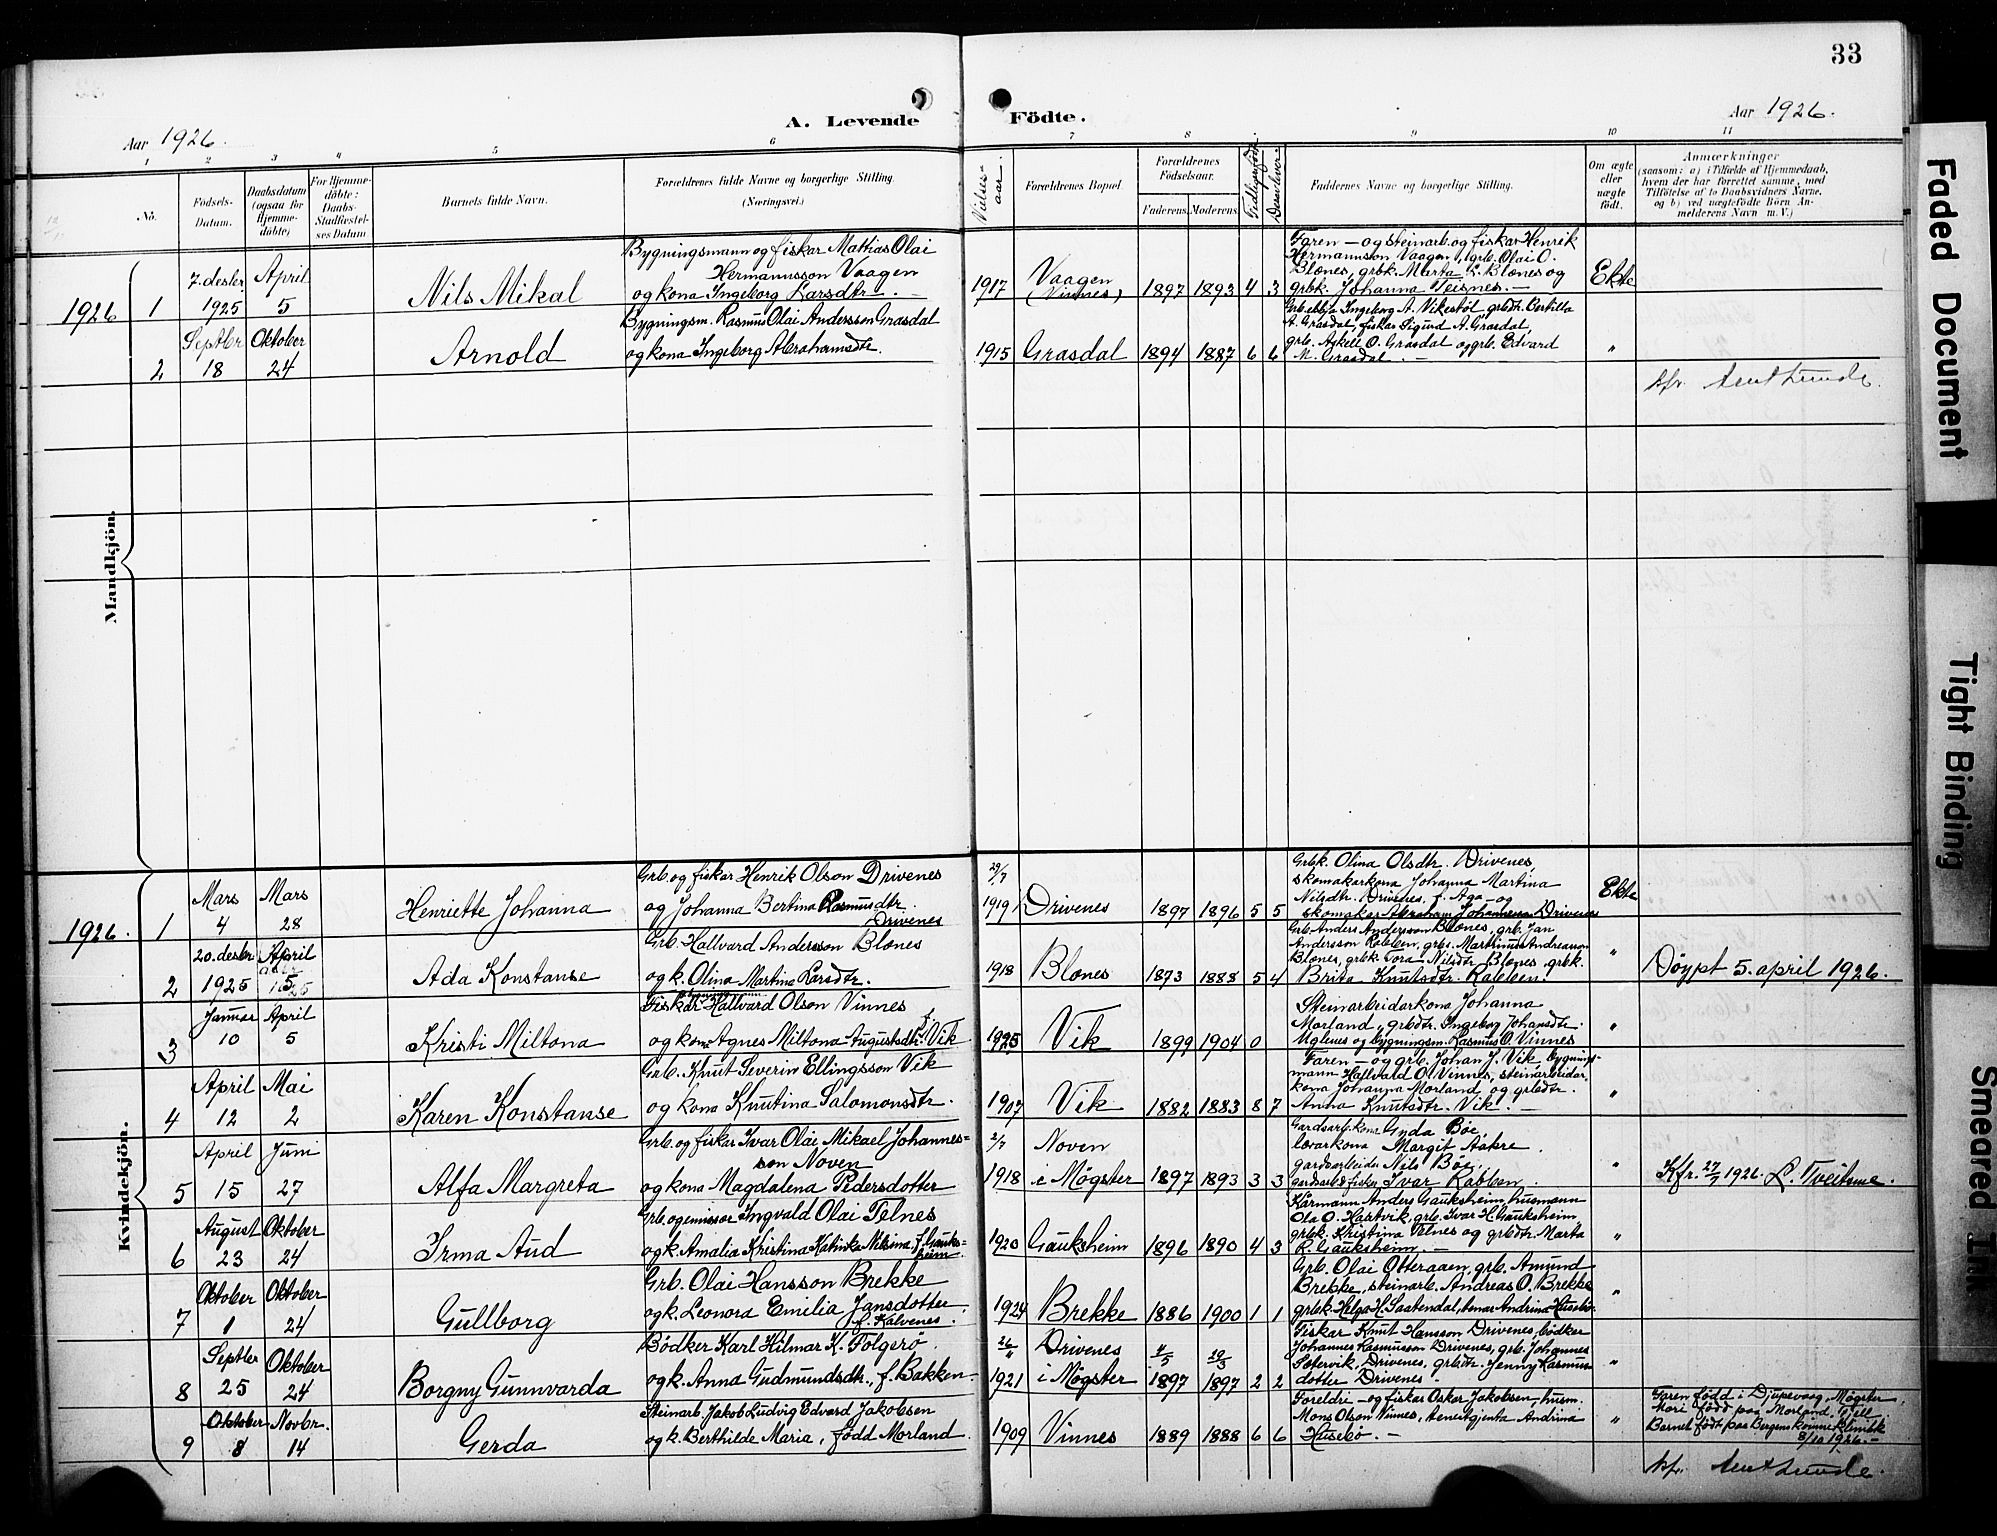 33
A. Levende Födte.
Aar 1926.
Aar 1926.
1 2 3 4 5 6 7 8 9 10 11
No.
Födsels-Datum.
Daabsdatum (ogsaa for Hjemme-döbte)
For Hjemme-döbte: Daabs-Stadfæstelses Datum
Barnets fulde Navn.
Forældrenes fulde Navne og borgerlige Stilling. (Næringsvei.)
Vielses-aar.
Forældrenes Bopæl.
Forældrenes Födselsaar.
Faderens. Moderens.
Tidligere födte
Derav lever.
Faddernes Navne og borgerlige Stilling.
Om ægte eller uægte födt.
Anmærkninger
(saasom: a) i Tilfælde af Hjemmedaab, hvem der har forrettet samme, med Tilföielse af to Daabsvidners Navne, og b) ved uægtefödte Börn Anmelderens Navn m. V.)
Mandkjön.
1926 1 7. desbr. 1925 April 5 Nils Mikal
Bygningsmann og fiskar Mathias Olai
Hermannsson Vaagen
og kona Ingeborg Larsdtr.
1917 Vaagen (Vinnes) 1897 1893 4 3
Faren – og steinarb. og fiskar Henrik
Hermannsson Vaagen, grb. Olai O.
Blænes, grbk. Marta L. Blønes og
grbk. Johanna Teisnes. –
Ekte
2 Septbr 18 Oktober 24 Arnold
Bygningsm. Rasmus Olai Andersson Grasdal
og kona Ingeborg Abrahamsdtr.
1915 Grasdal 1894 1887 6 6
Ingeborg A. Vikestøl, grbdtr. Bertilla
A. Grasdal, fiskar Sigurd A. Grasdal,
grb. Askell O. Grasdal og grb. Edvard
M. Grasdal. –
"
Kvindekjön.
1926. 1 Mars 4 Mars 28 Henriette Johanna
Grb. og fiskar Henrik Olson Drivenes
og Johanna Bertina Rasmusdtr.
Drivenes
29/7 1919 Drivenes 1897 1896 5 5
Grbk. Olina Olsdtr. Drivenes
skomakarkona Johanna Martina
Nilsdtr. Drivenes, f. Aga – og
skomakar Abraham Johannesson Drivenes
Ekte
2 20. desbr 1925 April 5 Ada Konstanse
Grb. Hallvard Andersson Blænes
og k. Olina Martina Larsdtr.
1918 Blønes 1873 1888 5 4
Grb. Anders Andersson Blønes, grb. Jan
Andersson Rabben, grbs. Martinus Andreasson
Blønes, grbk. Tora Nilsdtr. Blønes, grbk.
Brita Knutsdtr. Rabben.
"
Døypt 5. april 1926.
3 Januar 10 April 5 Kristi Miltona
Fiskar Hallvard Olson Vinnes
og kona Agnes Miltona Augustsdtr. f. Vik
1925 Vik 1899 1904 0
Steinarbeidarkona Johanna
Morland, grbdtr. Ingeborg Johansdtr.
Uglenes og bygningsm. Rasmus O. Vinnes
"
4 April 12 Mai 2 Karen Konstanse
Grb. Knut Severin Ellingsson Vik
og kona Knutina Salomonsdtr.
1907 Vik 1882 1883 8 7
Faren – og grb. Johan J. Vik, bygnings-
mann Hallvard O. Vinnes, steinarbeidar-
kona Johanna Morland, og grbdtr.
Anna Knutsdtr. Vik. –
"
5 April 15 Juni 27 Alfa Margreta
Grb. og fiskar Ivar Olai Mikael Johannes-
son Noven
og kona Magdalena Pedersdotter
2/7 1918 Noven i Møgster 1897 1893 3 3
Gardsarb. kona Gyda Bøe,
lærarkona Margit Aakre
gardsarbeidar Nils Bøe,
Ivar Rabben.
"
Kfr. 27/7 1926. L. Tveitnme.
6 August 23 Oktober 24 Irma Aud
Grb. og emissær Ingvald Olai Telnes
og k. Amalia Kristina Katinka Nilsina, f. Gauks-
heim
1920 Gauksheim 1896 1890 4 3
Kårmann Anders Gauksheim, husmann
Ola O. Hartvik, grb. Ivar H. Gauksheim
grbk. Kristina Telnes og grbdtr. Marta
R. Gauksheim. –
"
7 Oktober 1 Oktober 24 Gullborg
Grb. Olai Hansson Brekke
og k. Leonora Emilia Jansdotter
f. Kalvenes.
1924 Brekke 1886 1900 1 1
Grb. Olai Otteraaen, grb. Amund
Brekke, steinarb. Andreas O. Brekke
grbk. Helga H. Saatendal, tenar Andrina Husebø.
"
8 Septbr 25 Oktober 24 Borgny Gunnvarda
Bødker Karl Hilmar K. Folgerø
og k. Anna Gudmundsdtr., f. Bakken
26/11 1921 Drivenes i Møgster 4/5 1897 19/3 1897 2 2
Fiskar Knut Hansson Drivenes, bødker
Johannes Rasmusson Drivenes, grb. Johannes
Sætervik, Drivenes, grbdtr. Jenny Rasmus-
dotter Drivenes.
"
9 Oktober 8 Novbr. 14 Gerda
Steinarb. Jakob Ludvig Edvard Jakobsen
og k. Berthilde Maria, född Morland.
1909 Vinnes 1889 1888 6 6
Foreldri – og fiskar Oskar Jakobsen, husm.
Mons Olson Vinnes, tenestgjenta Andrina
Husebø. –
"
Faren född i Djupevaag, Møgster
Mori född paa Morland, Fjell
Barnet födt paa Bergens kvinneklinikk
8/10 1926. –
Faded Document
Tight Binding
Smeared Ink